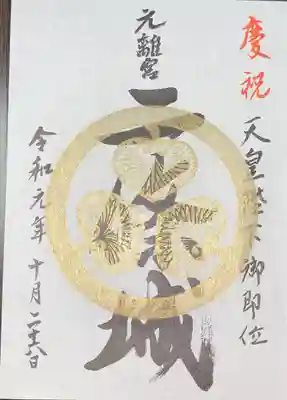 慶祝
天皇陛下御即位
元離宮
二条城
令和元年十月二十六日